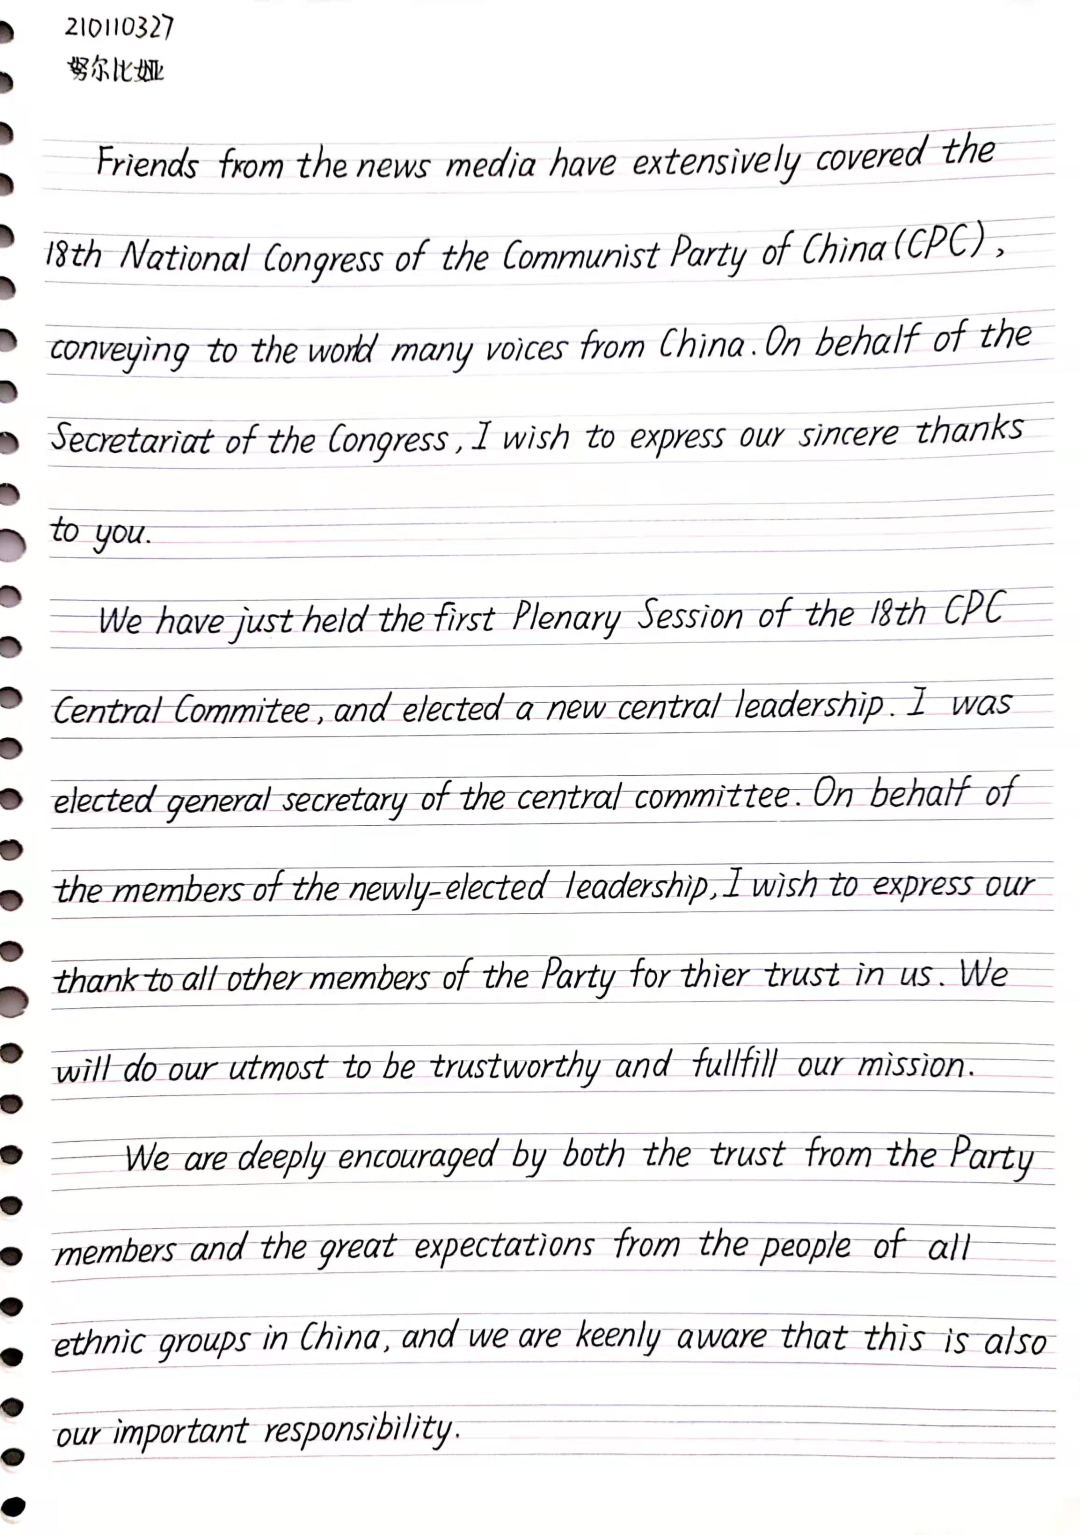 210110327
努尔比娅
Friends from the news media have extensively covered the
18th National Congress of the Communist Party of China (CPC),
conveying to the world many voices from China. On behalf of the
Secretariat of the Congress, I wish to express our sincere thanks
to you.
We have just held the first Plenary Session of the 18th CPC
Central Commitee, and elected a new central leadership. I was
elected general secretary of the central committee. On behalf of
the members of the newly-elected leadership, I wish to express our
thank to all other members of the Party for thier trust in us. We
will do our utmost to be trustworthy and fullfill our mission.
We are deeply encouraged by both the trust from the Party
members and the great expectations from the people of all
ethnic groups in China, and we are keenly aware that this is also
our important responsibility.